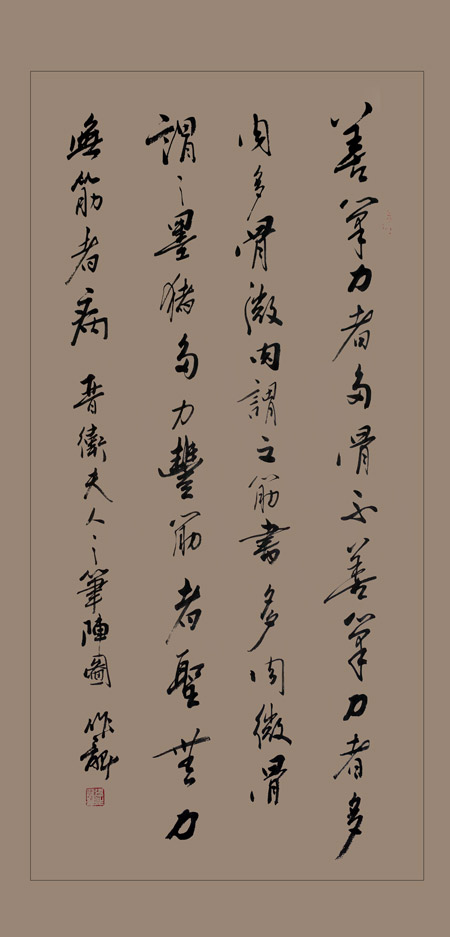 善笔力者多骨不善笔力者多
肉多骨微肉謂之筋書多肉微骨
謂之墨猪多力豐筋者聖無力
無筋者病 晋衛夫人之筆陣圖